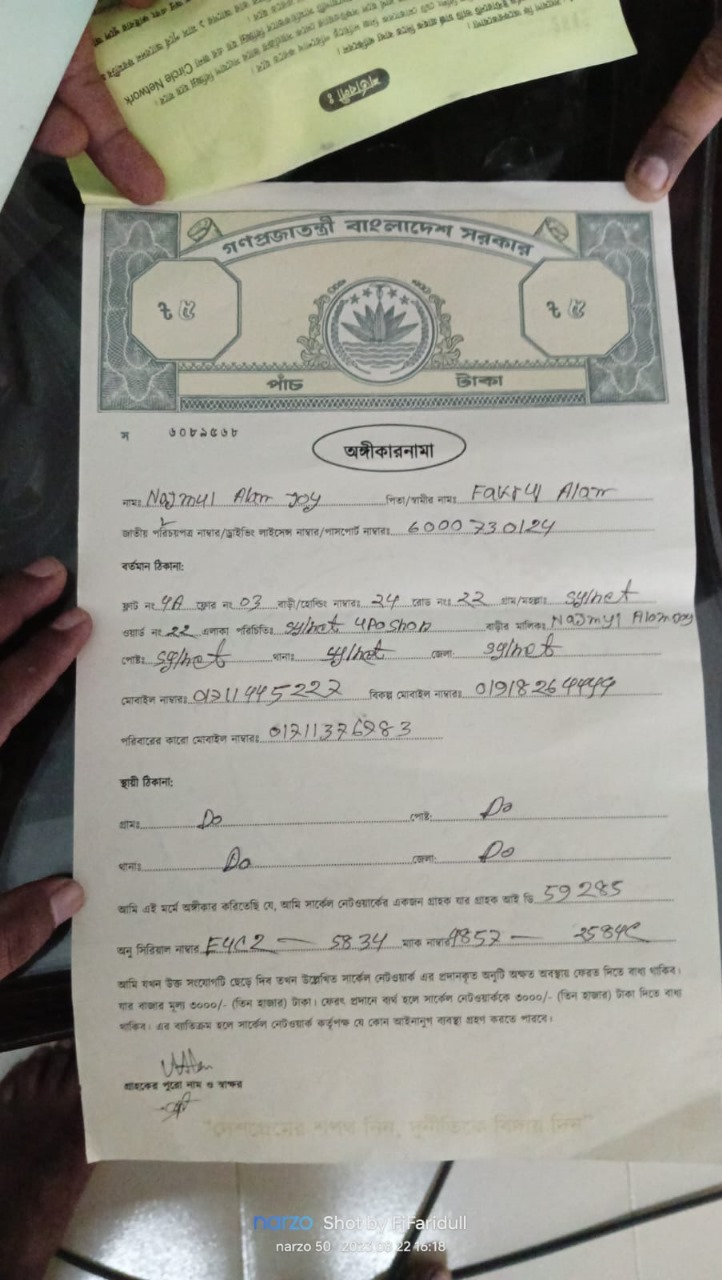 Circle Network
শর্তাবলী ঃ
গণপ্রজাতন্ত্রী বাংলাদেশ সরকার
৳ ৫ ৳ ৫
পাঁচ টাকা
স ৬০৮৯৫৬৮
অঙ্গীকারনামা
নামঃ Najmul Alam Joy পিতা/স্বামীর নামঃ Fakrul Alam
জাতীয় পরিচয়পত্র নাম্বার/ড্রাইভিং লাইসেন্স নাম্বার/পাসপোর্ট নাম্বারঃ 6000730124
বর্তমান ঠিকানা:
ফ্লাট নং 4A ফ্লোর নং 03 বাড়ী/হোল্ডিং নাম্বারঃ 24 রোড নংঃ 22 গ্রাম/মহল্লাঃ Sylhet
ওয়ার্ড নং 22 এলাকা পরিচিতিঃ Sylhet uposhon বাড়ীর মালিকঃ Najmul Alam Joy
পোষ্টঃ Sylhet থানাঃ Sylhet জেলা: Sylhet
মোবাইল নাম্বারঃ 01711445227 বিকল্প মোবাইল নাম্বারঃ 01918264444
পরিবারের কারো মোবাইল নাম্বারঃ 01711376983
স্থায়ী ঠিকানা:
গ্রামঃ Do পোষ্ট: Do
থানাঃ Do জেলা: Do
আমি এই মর্মে অঙ্গীকার করিতেছি যে, আমি সার্কেল নেটওয়ার্কের একজন গ্রাহক যার গ্রাহক আই ডি 59285
অনু সিরিয়াল নাম্বার E4C2 — 5834 ম্যাক নাম্বার 9857 — 2584C
আমি যখন উক্ত সংযোগটি ছেড়ে দিব তখন উল্লেখিত সার্কেল নেটওয়ার্ক এর প্রদানকৃত অনুটি অক্ষত অবস্থায় ফেরত দিতে বাধ্য থাকিব।
যার বাজার মূল্য ৩০০০/- (তিন হাজার) টাকা। ফেরৎ প্রদানে ব্যর্থ হলে সার্কেল নেটওয়ার্ককে ৩০০০/- (তিন হাজার) টাকা দিতে বাধ্য
থাকিব। এর ব্যতিক্রম হলে সার্কেল নেটওয়ার্ক কর্তৃপক্ষ যে কোন আইনানুগ ব্যবস্থা গ্রহণ করতে পারবে।
গ্রাহকের পুরো নাম ও স্বাক্ষর
"দেশপ্রেমের শপথ নিন, দুর্নীতিকে বিদায় দিন"
narzo Shot by FjFaridull
narzo 50 2022.08.22 16:18